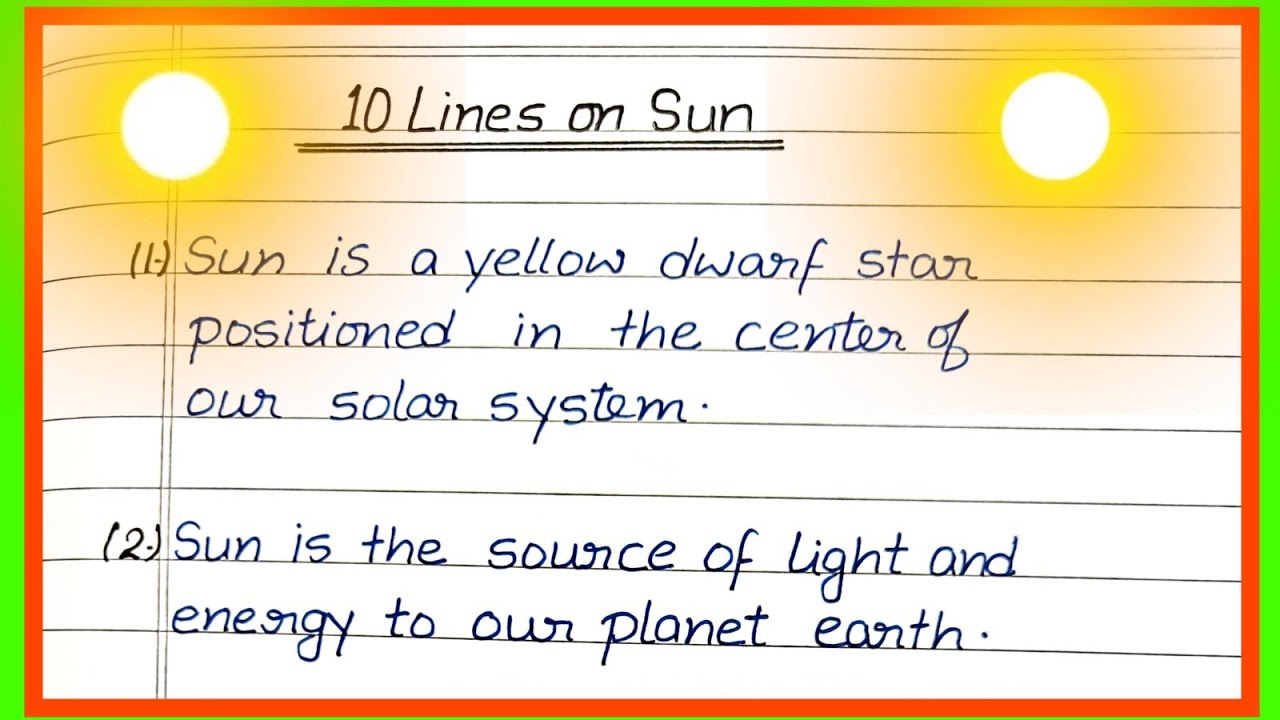 10 Lines on Sun
(1.) Sun is a yellow dwarf star
positioned in the center of
our solar system.
(2.) Sun is the source of light and
energy to our planet earth.